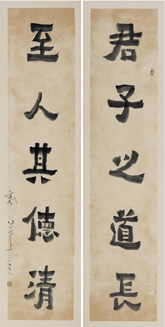 君子之道長
至人其德清